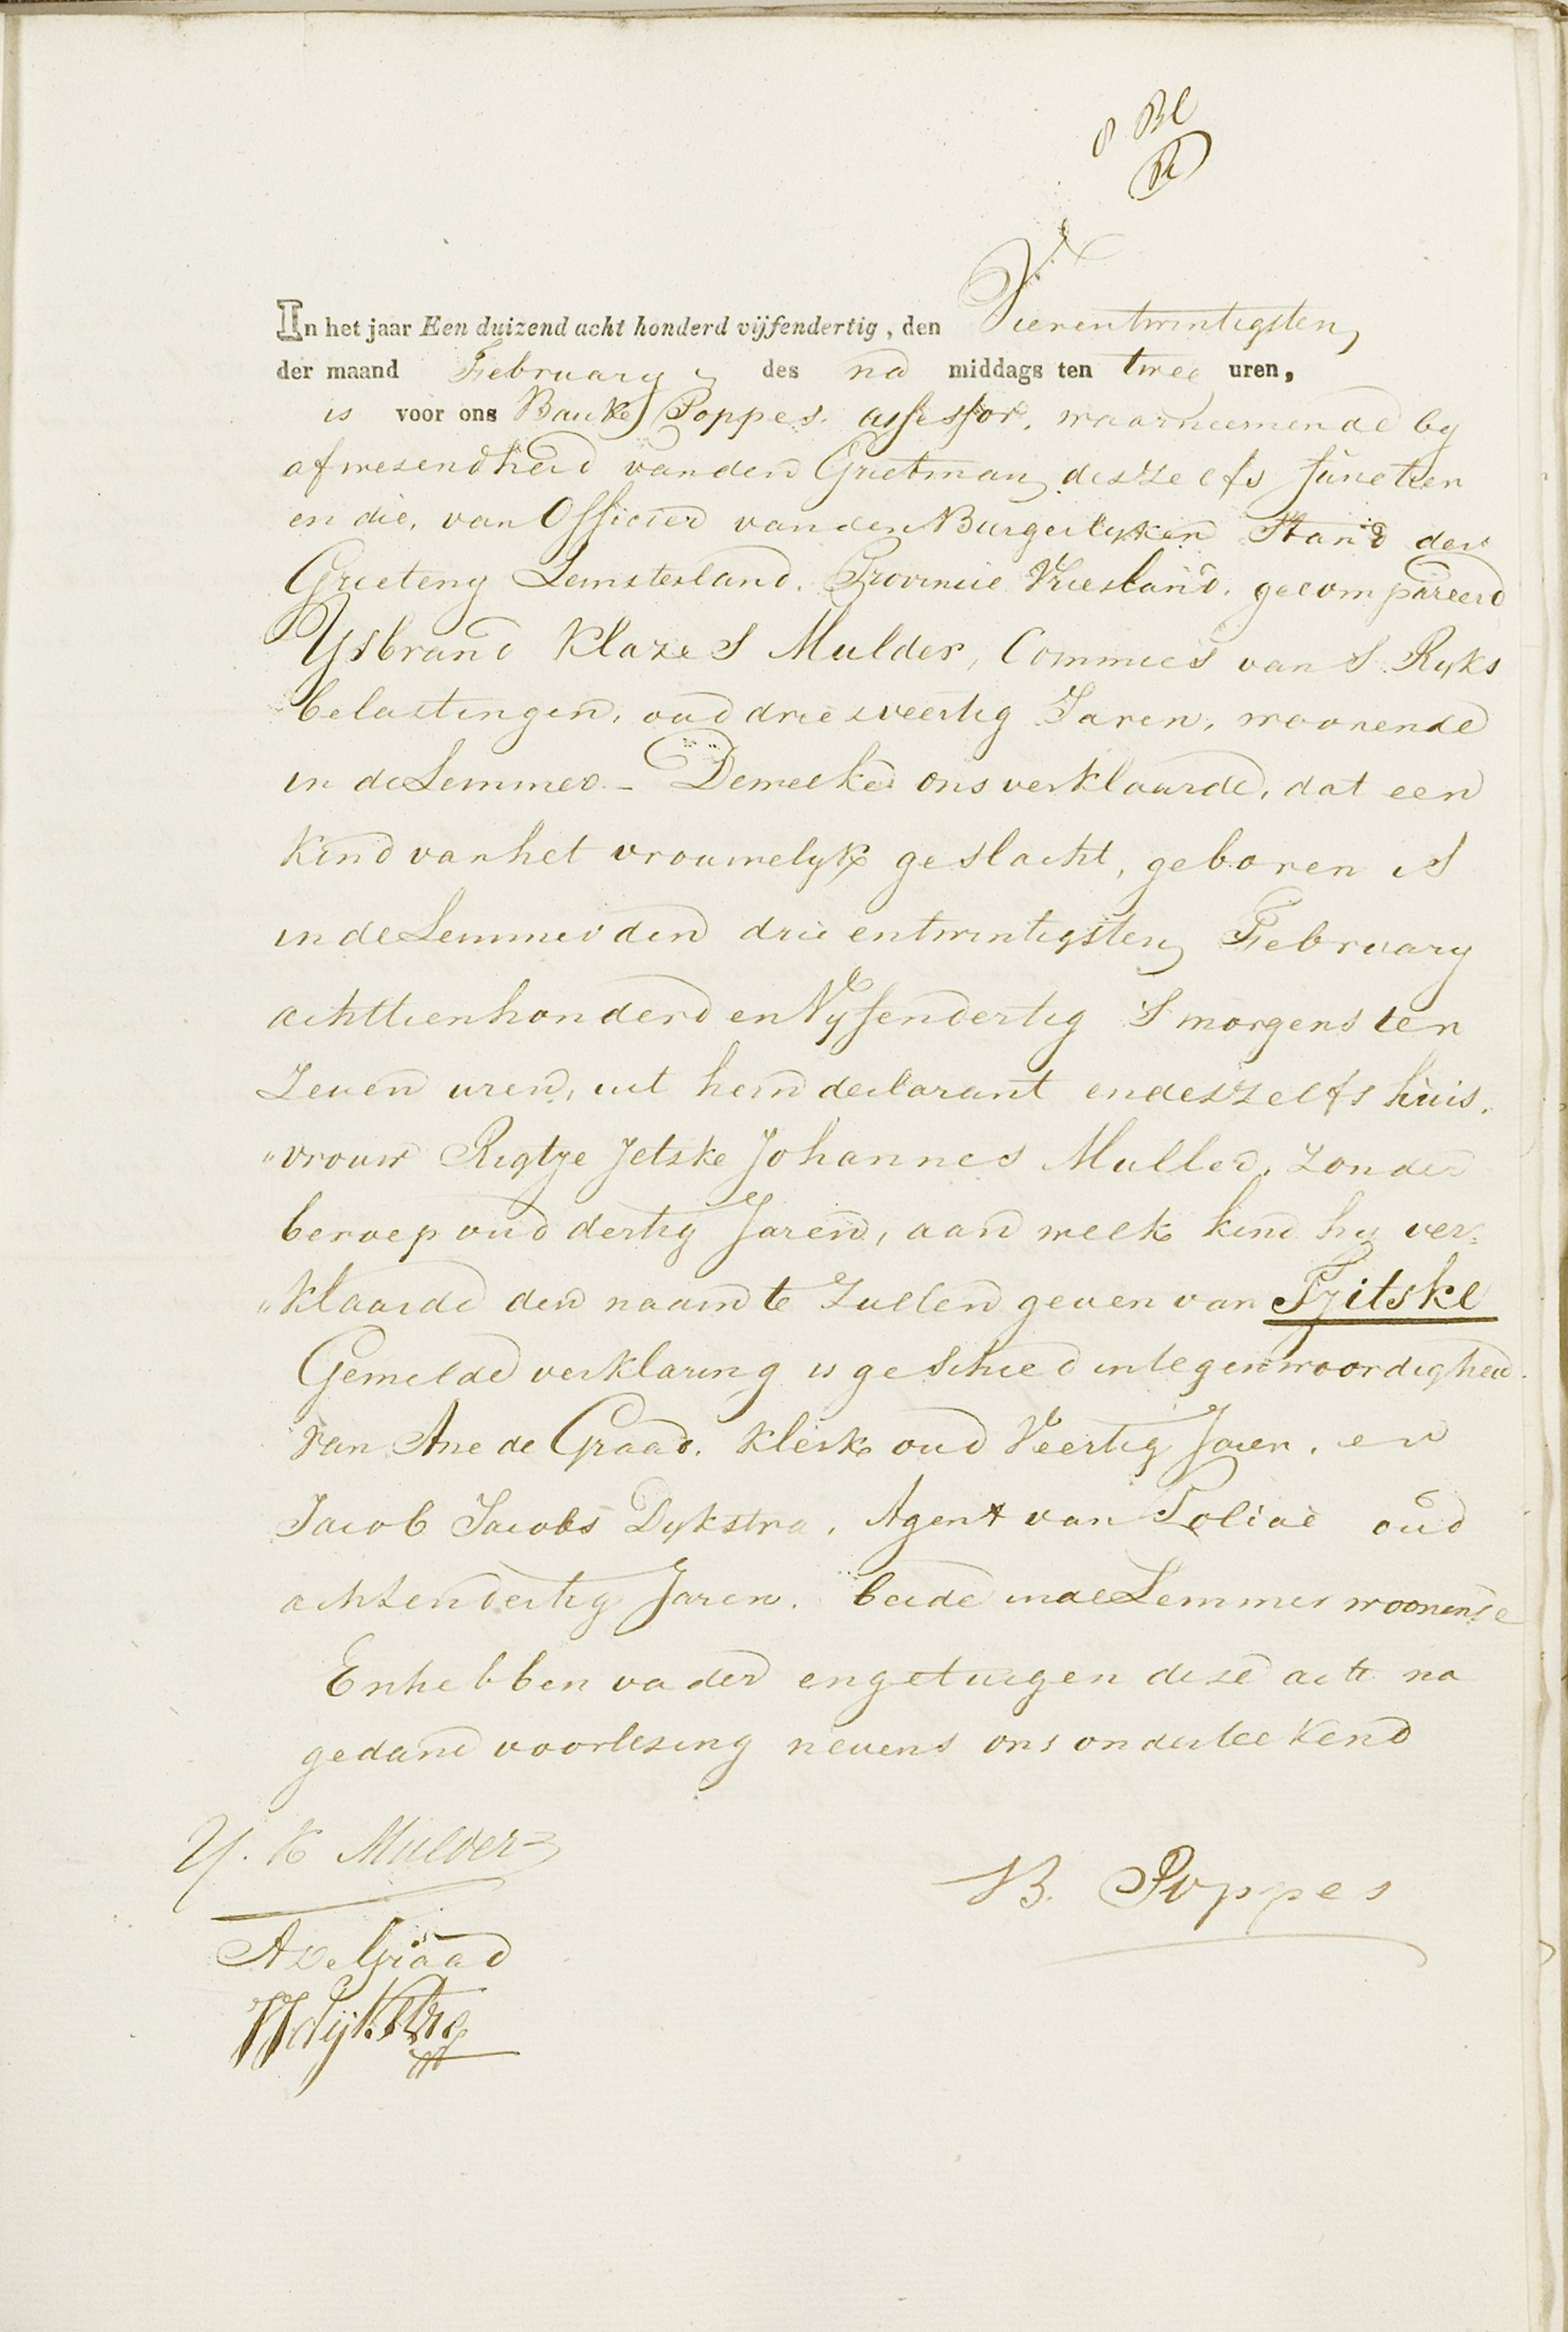 8 Bl
In het jaar Een duizend acht honderd vijfendertig, den Vierentwintigsten
der maand February des na middags ten twee uren,
is voor ons Bauke Poppes. assessor, waarneemende by
afwesendheid van den Grietman deszelfs functien
en die, van Officier van den Burgerlyken Stand der
Grieteny Lemsterland. Provincie Vriesland. gecompareerd
Ysbrand Klazes Mulder, Commies van S Ryks
belastingen, oud drie & veertig Jaren, woonende
in de Lemmer. - Dewelke ons verklaarde, dat een
kind van het vrouwelyk geslacht, geboren is
in de Lemmer den drie entwintigsten February
achttienhonderd en Vyfendertig S morgens ten
Zeven uren, uit hem declarant en deszelfs huis,
"vrouw Rigtje Jetske Johannes Muller, zonder
beroep oud dertig Jaren, aan welk kind hy ver=
"klaarde den naam te zullen geven van Fzitske
Gemelde verklaring is geschied in tegenwoordigheid
van Ane de Graad. klerk oud Veertig Jaren, en
Jacob Jacobs Dykstra, Agent van Policie oud
achtendertig Jaren. beide in de Lemmer woonende
En hebben vader en getuigen deze acte na
gedane voorlezing nevens ons onderteekend
Y. K Mulder
B. Poppes
A de Graad
JJ Dijkstra